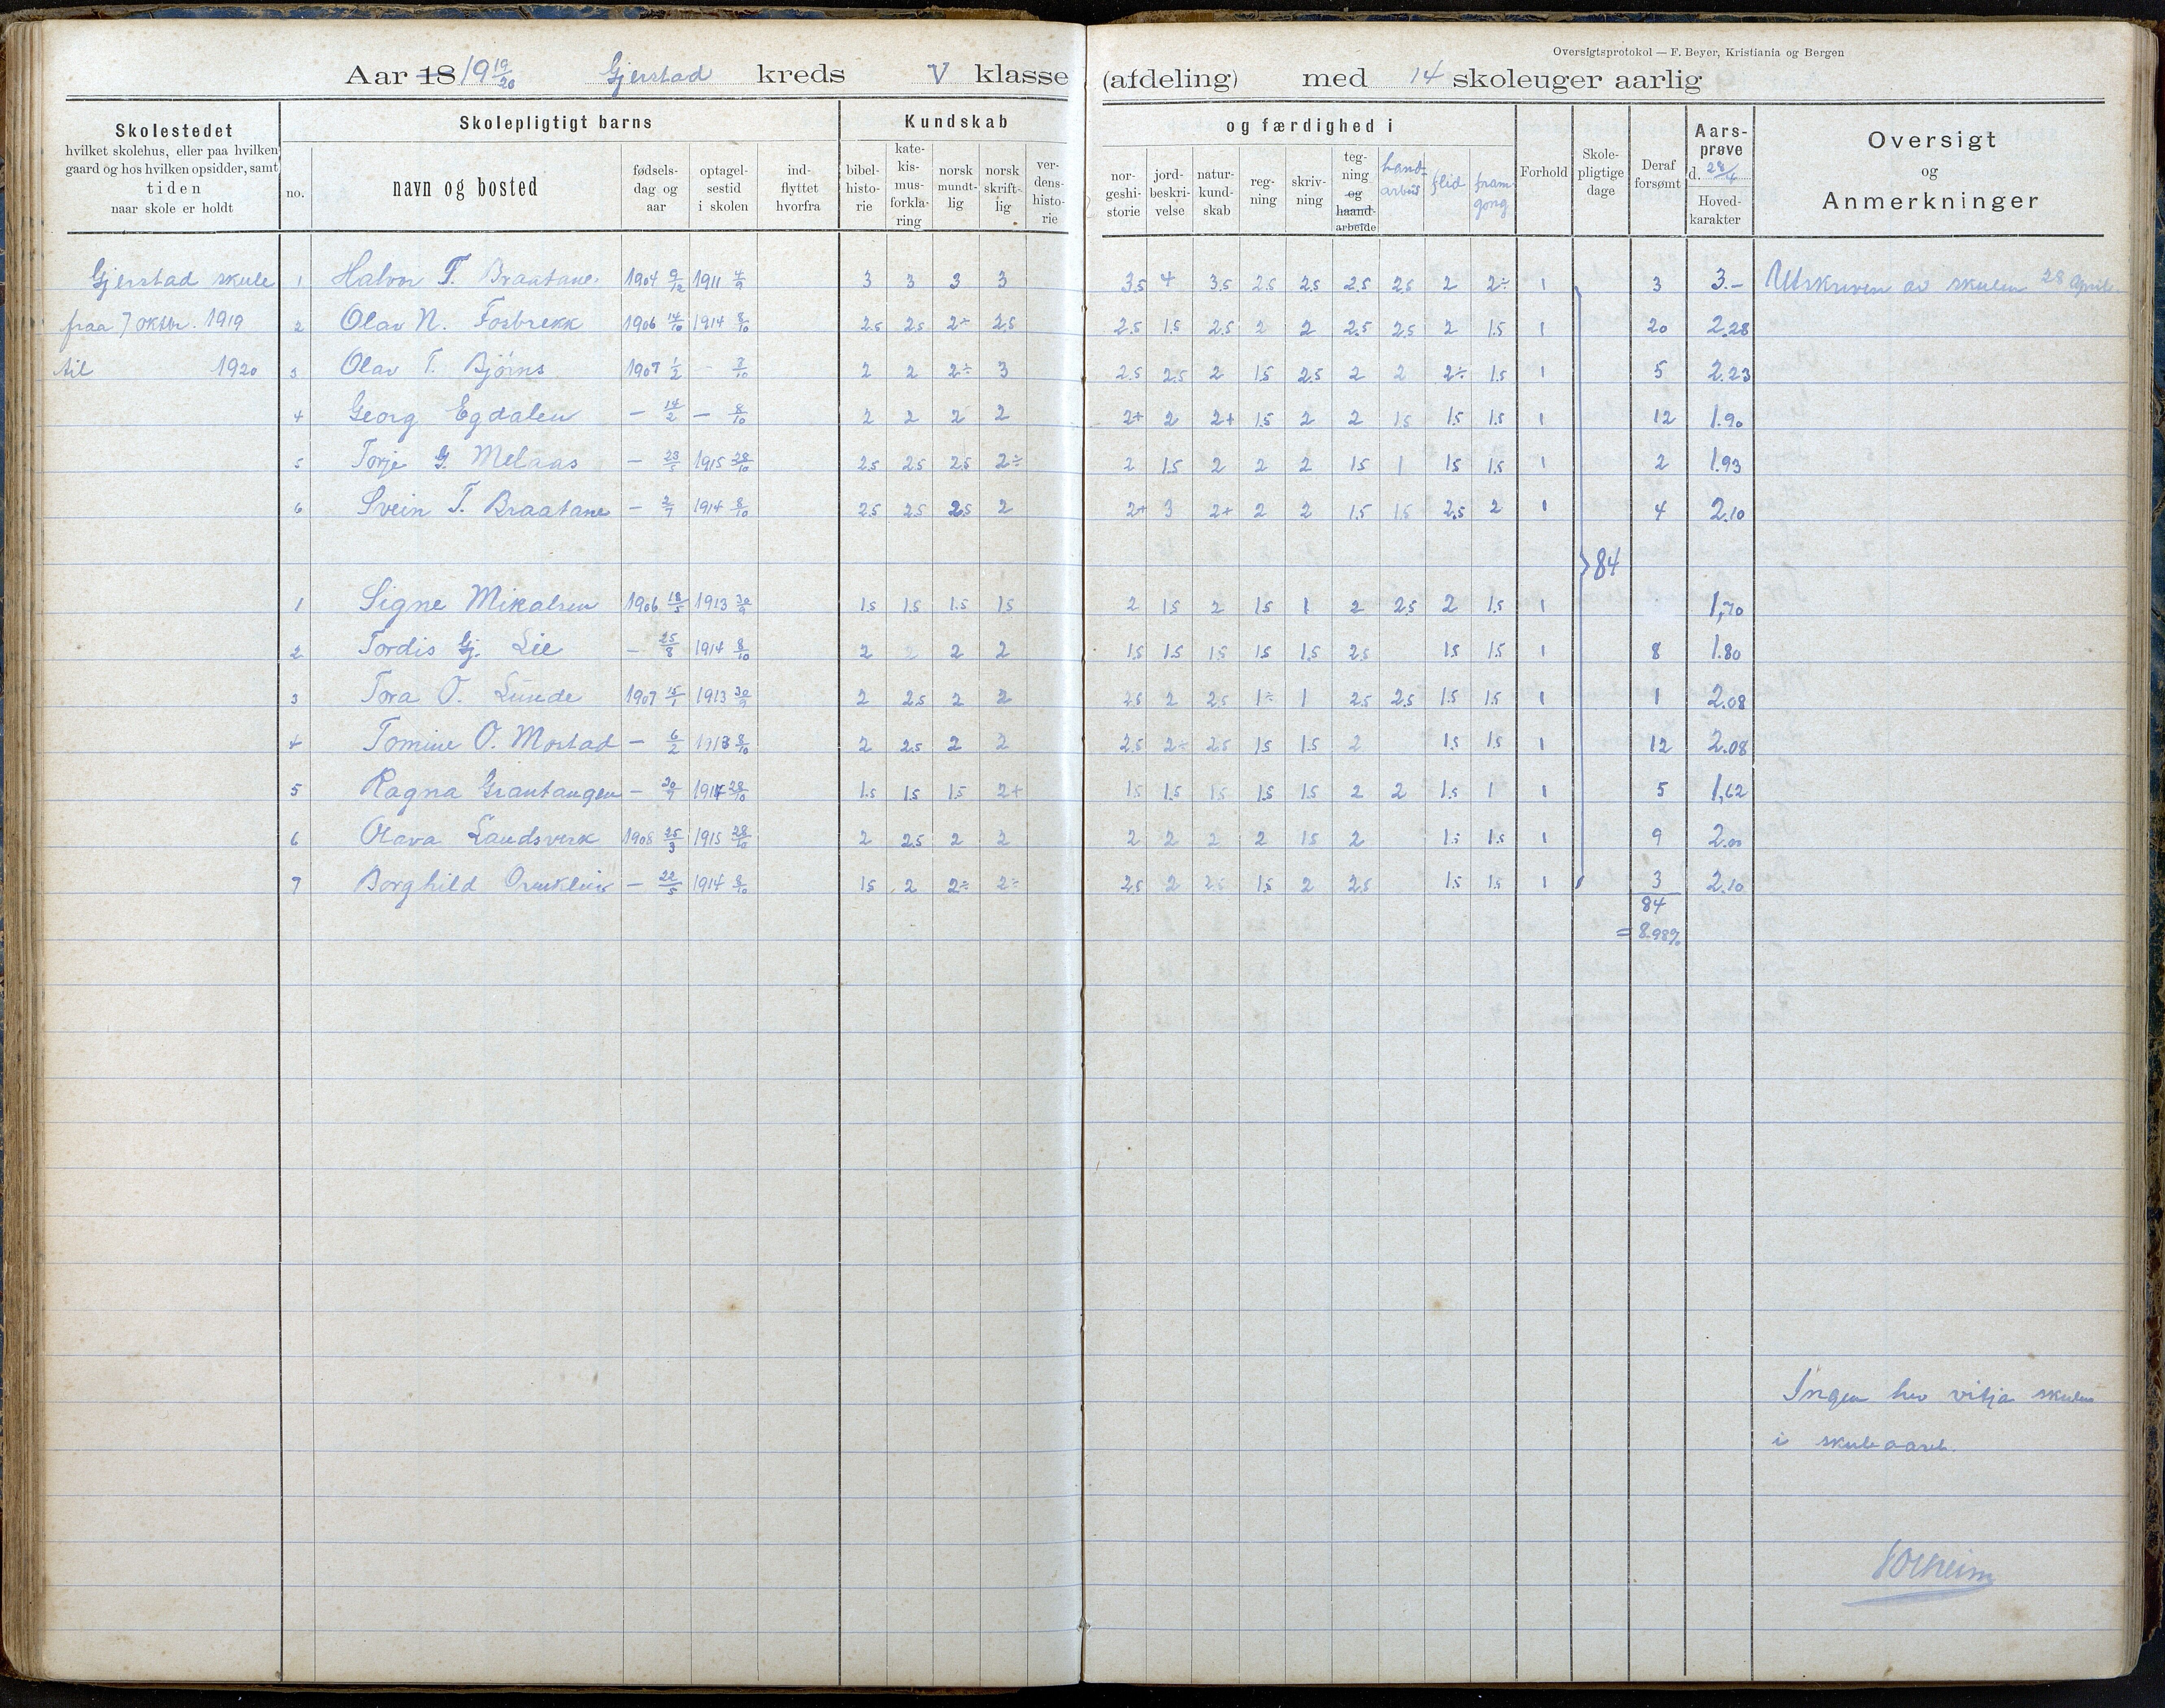 Oversigtsprotokol — F. Beyer, Kristiania og Bergen
Aar 18 19 19/20 Gjerstad kreds V klasse (afdeling) med 14 skoleuger aarlig
Skolestedet
hvilket skolehus, eller paa hvilken
gaard og hos hvilken opsidder, samt
tiden
naar skole er holdt
Skolepligtigt barns
no.
navn og bosted
fødsels-
dag og
aar
optagel-
sestid
i skolen
ind-
flyttet
hvorfra
Kundskab
bibel-
histo-
rie
kate-
kis-
mus-
forkla-
ring
norsk
mundt-
lig
norsk
skrift-
lig
ver-
dens-
histo-
rie
og færdighed i
nor-
geshi-
storie
jord-
beskri-
velse
natur-
kund-
skab
reg-
ning
skriv-
ning
teg-
ning
og
haand-
arbeide
hand-
arbeid
flid
fram-
gong
Forhold
Skole-
pligtige
dage
Deraf
forsømt
Aars-
prøve
d. 28/4
Hoved-
karakter
Oversigt
og
Anmerkninger
Gjerstad skule 1 Halvor T. Braatane. 1904 9/12 1911 4/9 3 3 3 3 3.5 4 3.5 2.5 2.5 2.5 2.5 2 2÷ 1 3 3.– Utskriven av skulen 28 april.
fraa 7 oktbr. 1919 2 Olav N. Fosbrekk 1906 14/10 1914 8/10 2.5 2.5 2÷ 2.5 2.5 1.5 2.5 2 2 2.5 2.5 2 1.5 1 20 2.28
til 1920 3 Olav T. Bjørns 1907 1/2 - 7/10 2 2 2÷ 3 2.5 2.5 2 1.5 2.5 2 2 2÷ 1.5 1 5 2.23
4 Georg Egdalen — 14/2 — 8/10 2 2 2 2 2+ 2 2+ 1.5 2 2 1.5 1.5 1.5 1 12 1.90
5 Torje G. Melaas — 23/5 1915 28/10 2.5 2.5 2.5 2÷ 2 1.5 2 2 2 1.5 1 1.5 1.5 1 2 1.93
6 Svein T. Braatane — 2/7 1914 8/10 2.5 2.5 2.5 2 2+ 3 2+ 2 2 1.5 1.5 2.5 2 1 4 2.10
84
1 Signe Mikalsen 1906 18/5 1913 30/9 1.5 1.5 1.5 1.5 2 1.5 2 1.5 1 2 2.5 2 1.5 1 1,70
2 Tordis Gj. Lie — 25/8 1914 8/10 2 2 2 2 1.5 1.5 1.5 1.5 1.5 2.5 1.5 1.5 1 8 1.80
3 Tora O. Lunde 1907 15/1 1913 30/9 2 2.5 2 2 2.5 2 2.5 1÷ 1 2.5 2.5 1.5 1.5 1 1 2.08
4 Tomine O. Mostad — 6/2 1913 8/10 2 2.5 2 2 2.5 2÷ 2.5 1.5 1.5 2 1.5 1.5 1 12 2.08
5 Ragna Grantangen — 20/7 1914 28/10 1.5 1.5 1.5 2+ 1.5 1.5 1.5 1.5 1.5 2 2 1.5 1 1 5 1,62
6 Olava Landsverk 1908 25/3 1915 28/10 2 2.5 2 2 2 2 2 2 1.5 2 1.5 1.5 1 9 2.00
7 Borghild — 22/5 1914 8/10 1.5 2 2÷ 2÷ 2.5 2 2.5 1.5 2 2.5 1.5 1.5 1 3 2.10
84
= 8.98%
Ingen hev vitja skulen
i skuleaaret.